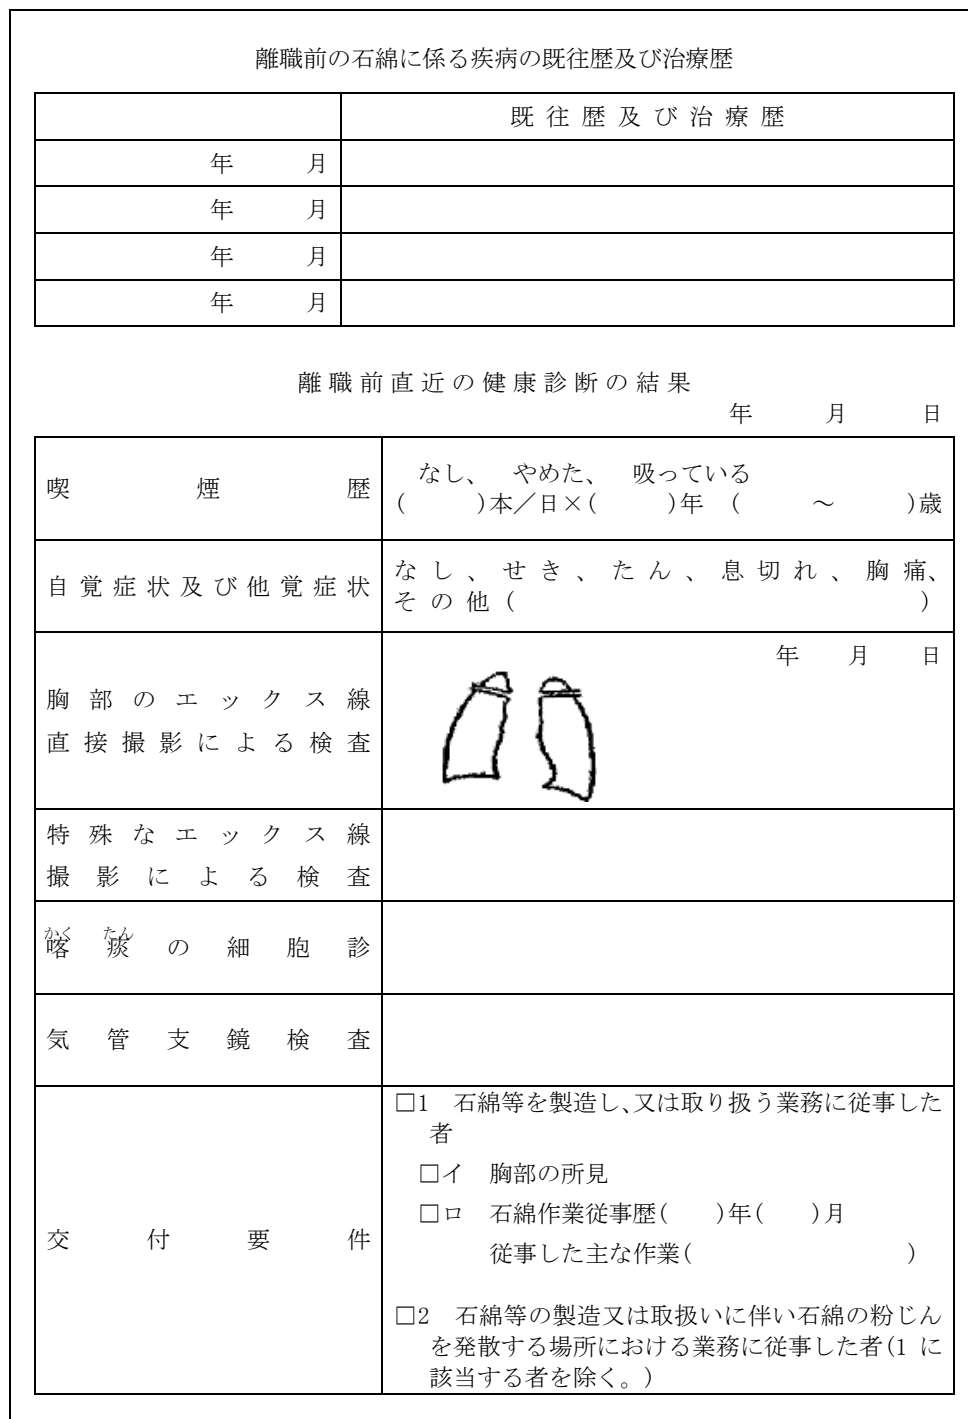 離職前の石綿に係る疾病の既往歴及び治療歴
既往歴及び治療歴
年　月
年　月
年　月
年　月
離職前直近の健康診断の結果
年　月　日
喫煙歴
なし、　やめた、　吸っている
(　　)本／日×(　　)年　(　　～　　)歳
自覚症状及び他覚症状
なし、せき、たん、息切れ、胸痛、
その他(　　　　)
胸部のエックス線
直接撮影による検査
年　月　日
特殊なエックス線
撮影による検査
かく　たん
喀痰の細胞診
気管支鏡検査
交付要件
□1　石綿等を製造し、又は取り扱う業務に従事した
者
□イ　胸部の所見
□ロ　石綿作業従事歴(　　)年(　　)月
従事した主な作業(　　　　)
□2　石綿等の製造又は取扱いに伴い石綿の粉じん
を発散する場所における業務に従事した者(1 に
該当する者を除く。)